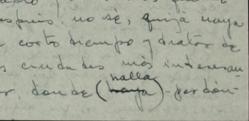 después. no sé, quizá vaya
corto tiempo y tratar de
ciudades más interesan
donde (halla
haya) - perdón